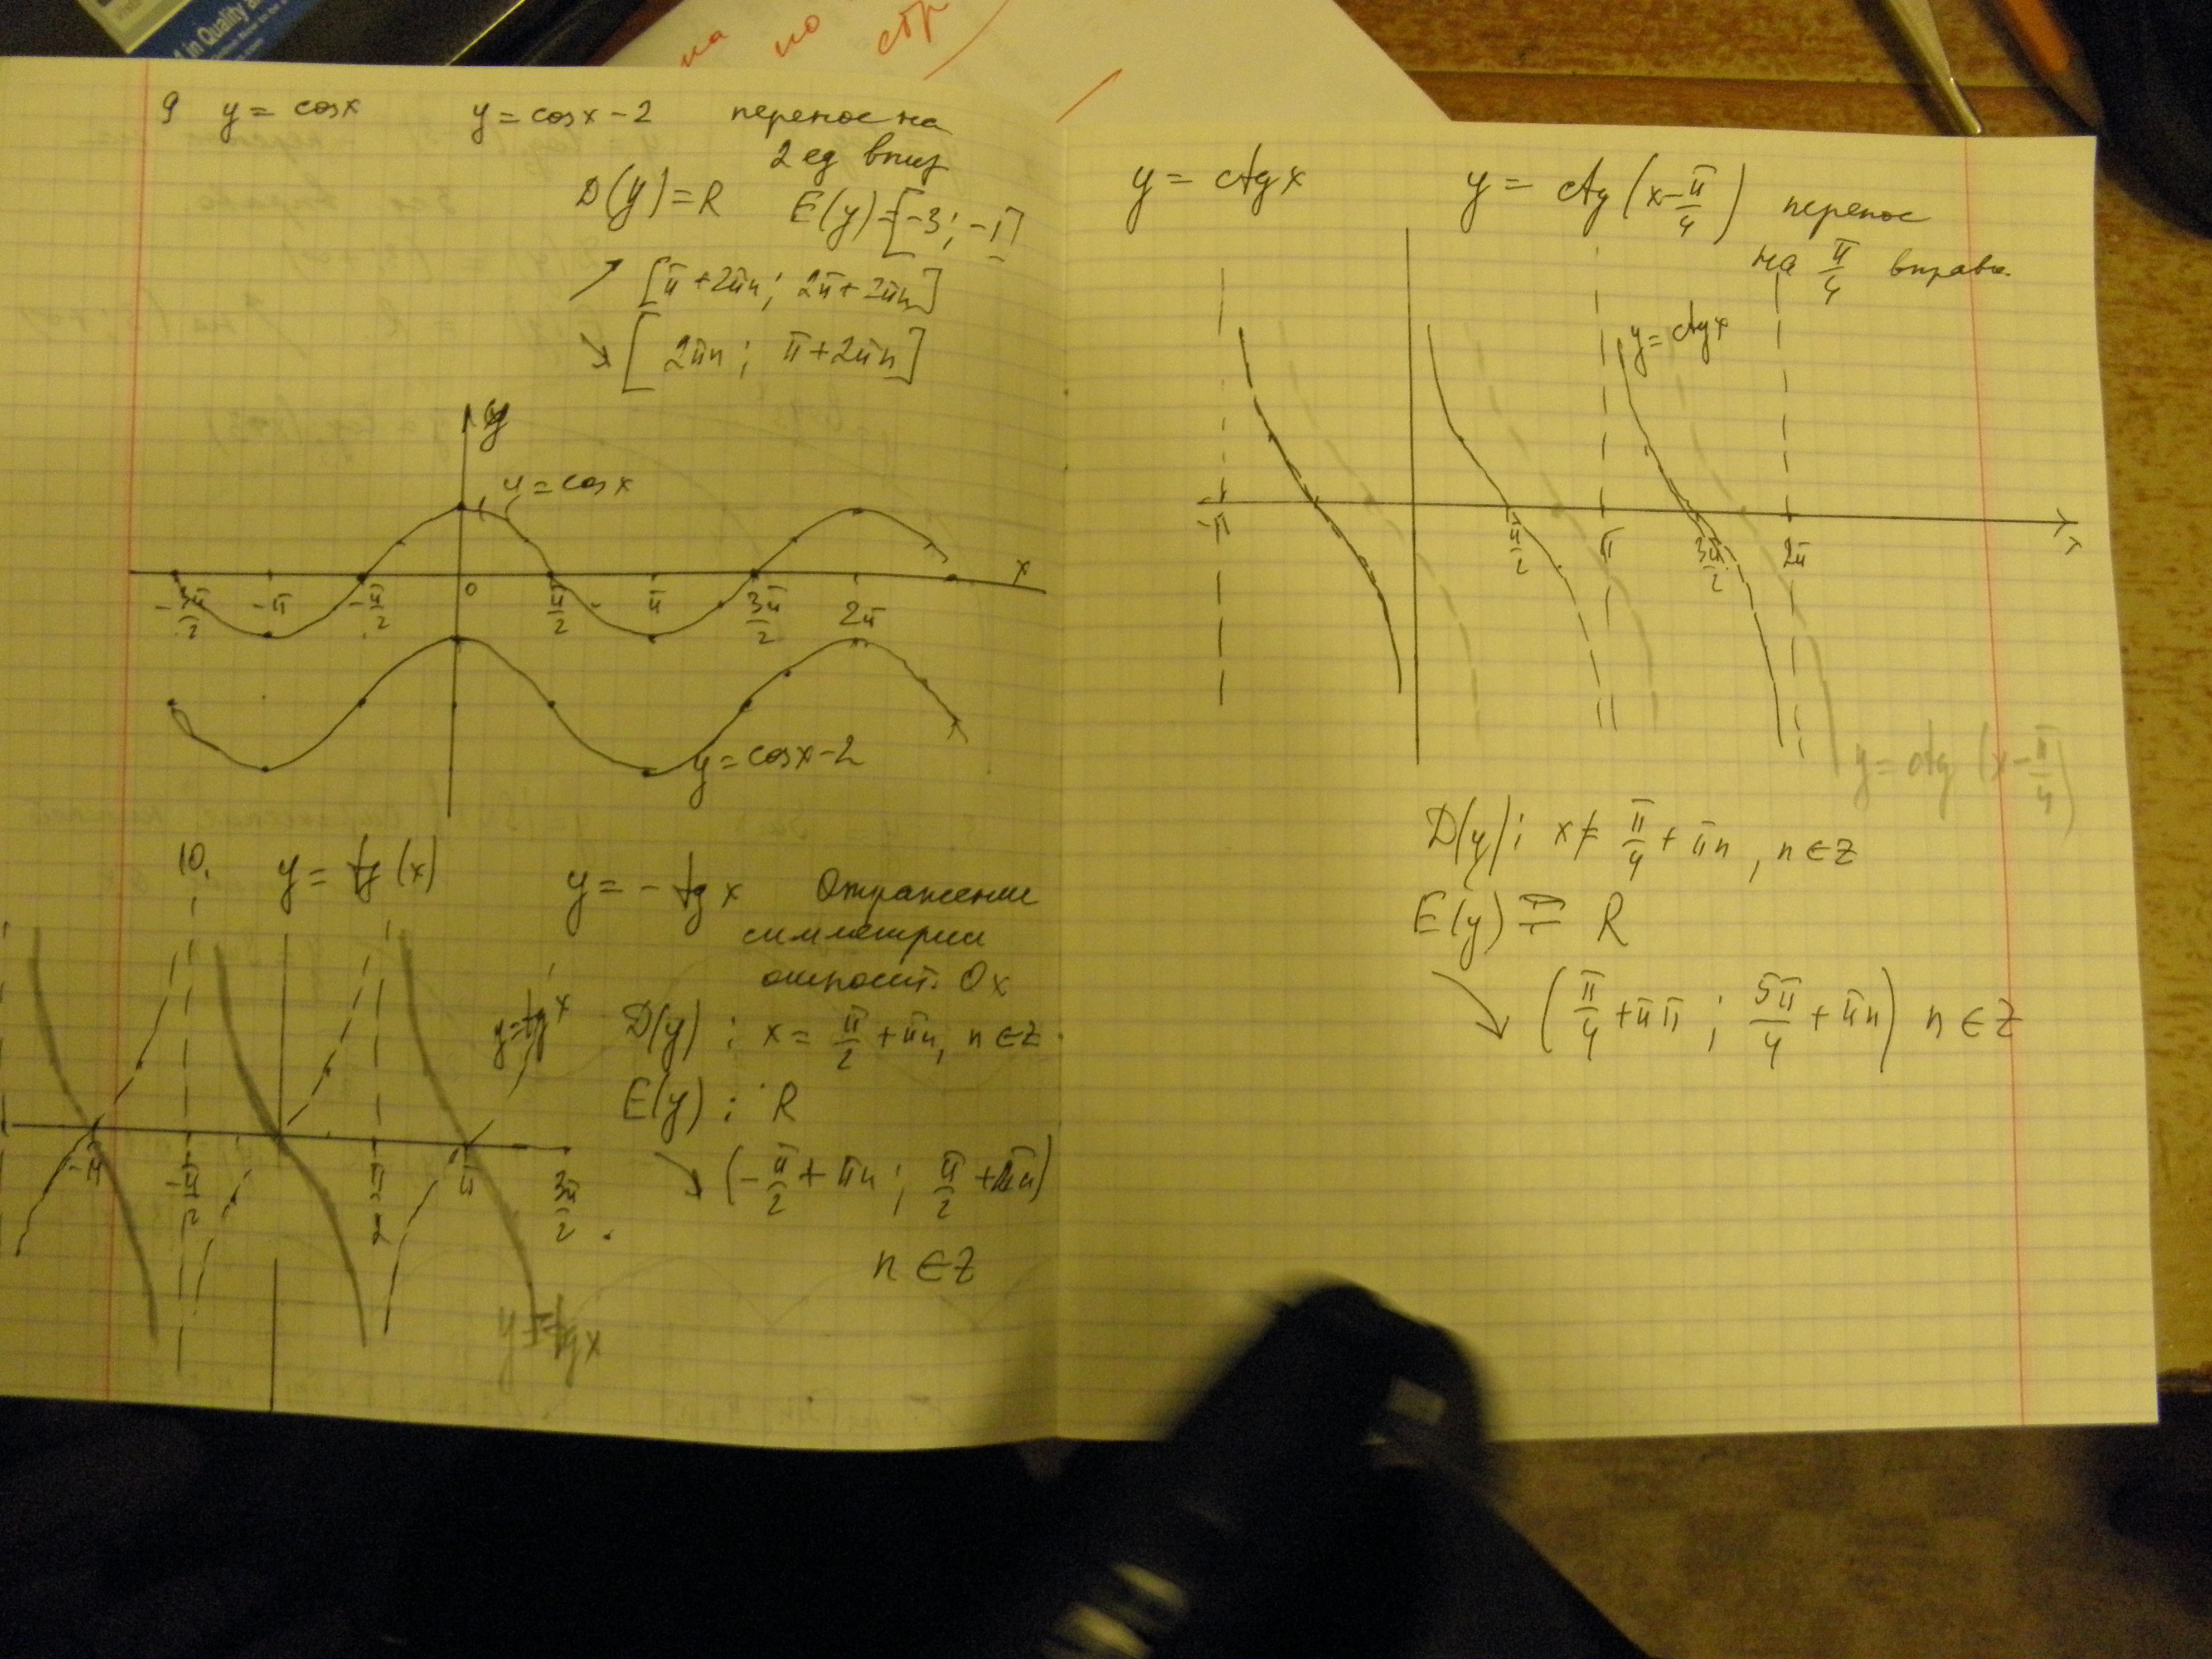 1 in Quality a
на по стр
9 y = cosx y = cosx - 2 перенос на
2 ед вниз
D(y) = R E(y) = [-3; -1]
↗ [π + 2πn; 2π + 2πn]
↘ [2πn; π + 2πn]
y
y = cosx
x
-3π/2 -π -π/2 0 π/2 π 3π/2 2π
y = cosx - 2
10. y = tg(x) y = - tg x Отражение
симметрии
относит. Ox
y = tg x
D(y) : x = π/2 + πn, n ∈ Z
E(y) : R
-π -π/2 π/2 π 3π/2
↘ (-π/2 + πn ; π/2 + πn)
n ∈ Z
y = -tg x
y = ctg x y = ctg (x - π/4) перенос
на π/4 вправо.
y = ctg x
-π π/2 π 3π/2 2π x
y = ctg (x - π/4)
D(y) : x ≠ π/4 + πn, n ∈ Z
E(y) = R
↘ (π/4 + ππ ; 5π/4 + πn) n ∈ Z